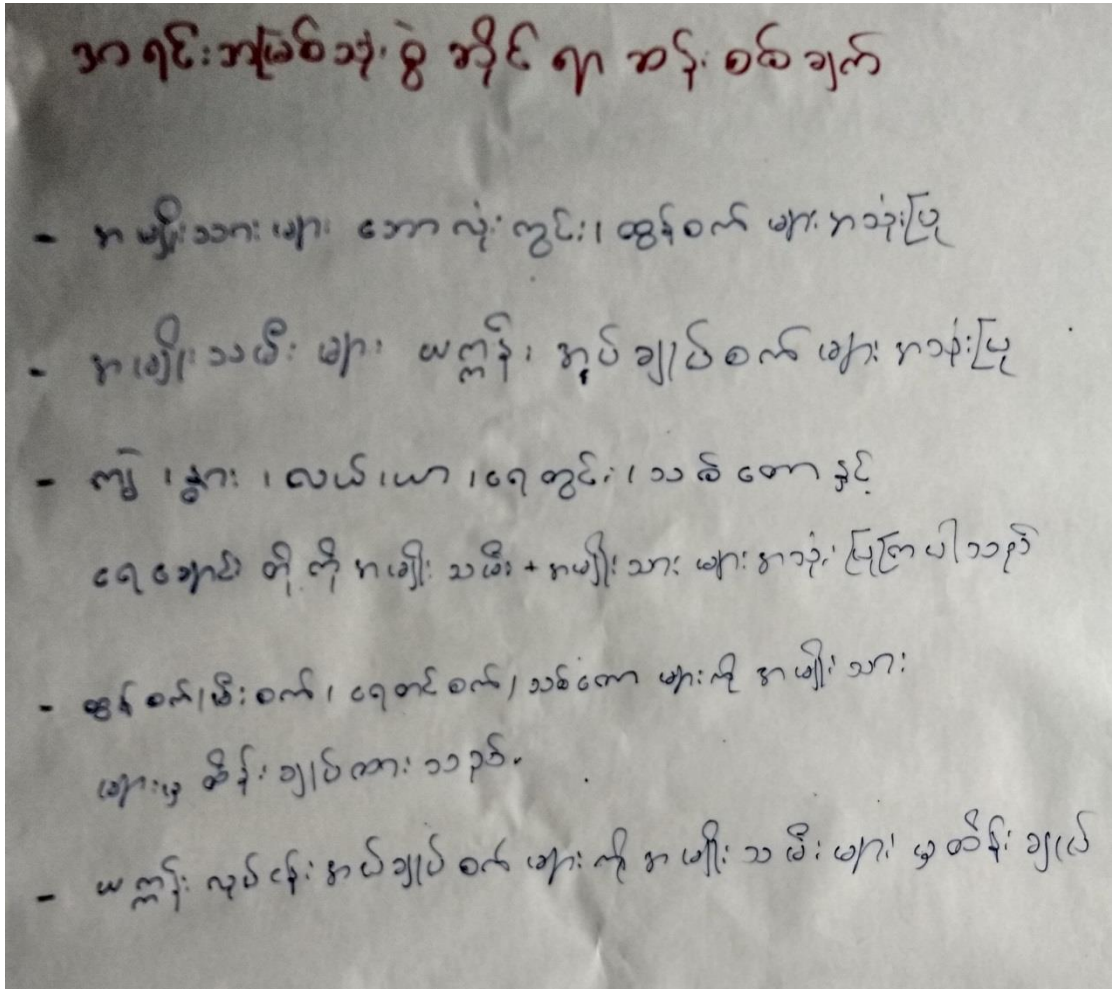 အရင်းအမြစ်သုံးစွဲဆိုင်ရာဆန်းစစ်ချက်
- အမျိုးသားများ ဘောလုံးကွင်း၊ ထွန်စက်များအသုံးပြု
- အမျိုးသမီးများ ယက္ကန်း၊ အပ်ချုပ်စက်များအသုံးပြု
- ကျွဲ၊ နွား၊ လယ်၊ ယာ၊ ရေတွင်း၊ သစ်တောနှင့်
ရေချောင်းတို့ကို အမျိုးသမီး + အမျိုးသားများအသုံးပြုကြပါသည်
- ထွန်စက်၊ မီးစက်၊ ရေတင်စက်၊ သစ်တောများကို အမျိုးသား
များမှ ထိန်းချုပ်ထားသည်.
- ယက္ကန်းလုပ်ငန်း အပ်ချုပ်စက်များကို အမျိုးသမီးများမှထိန်းချုပ်